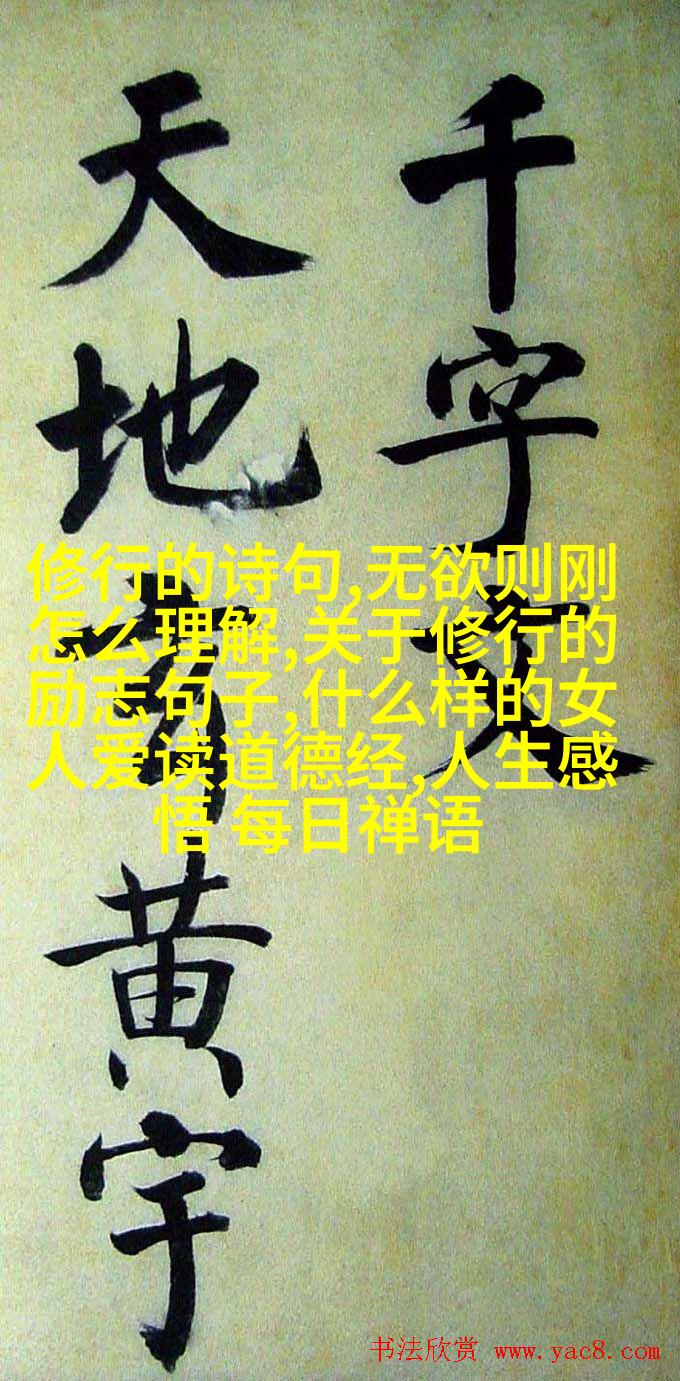 千字文
天地黄宇
修行的诗句,无欲则刚
怎么理解,关于修行的
励志句子,什么样的女
人爱读道德经,人生感
悟 每日禅语
书法欣赏 www.yac8.com